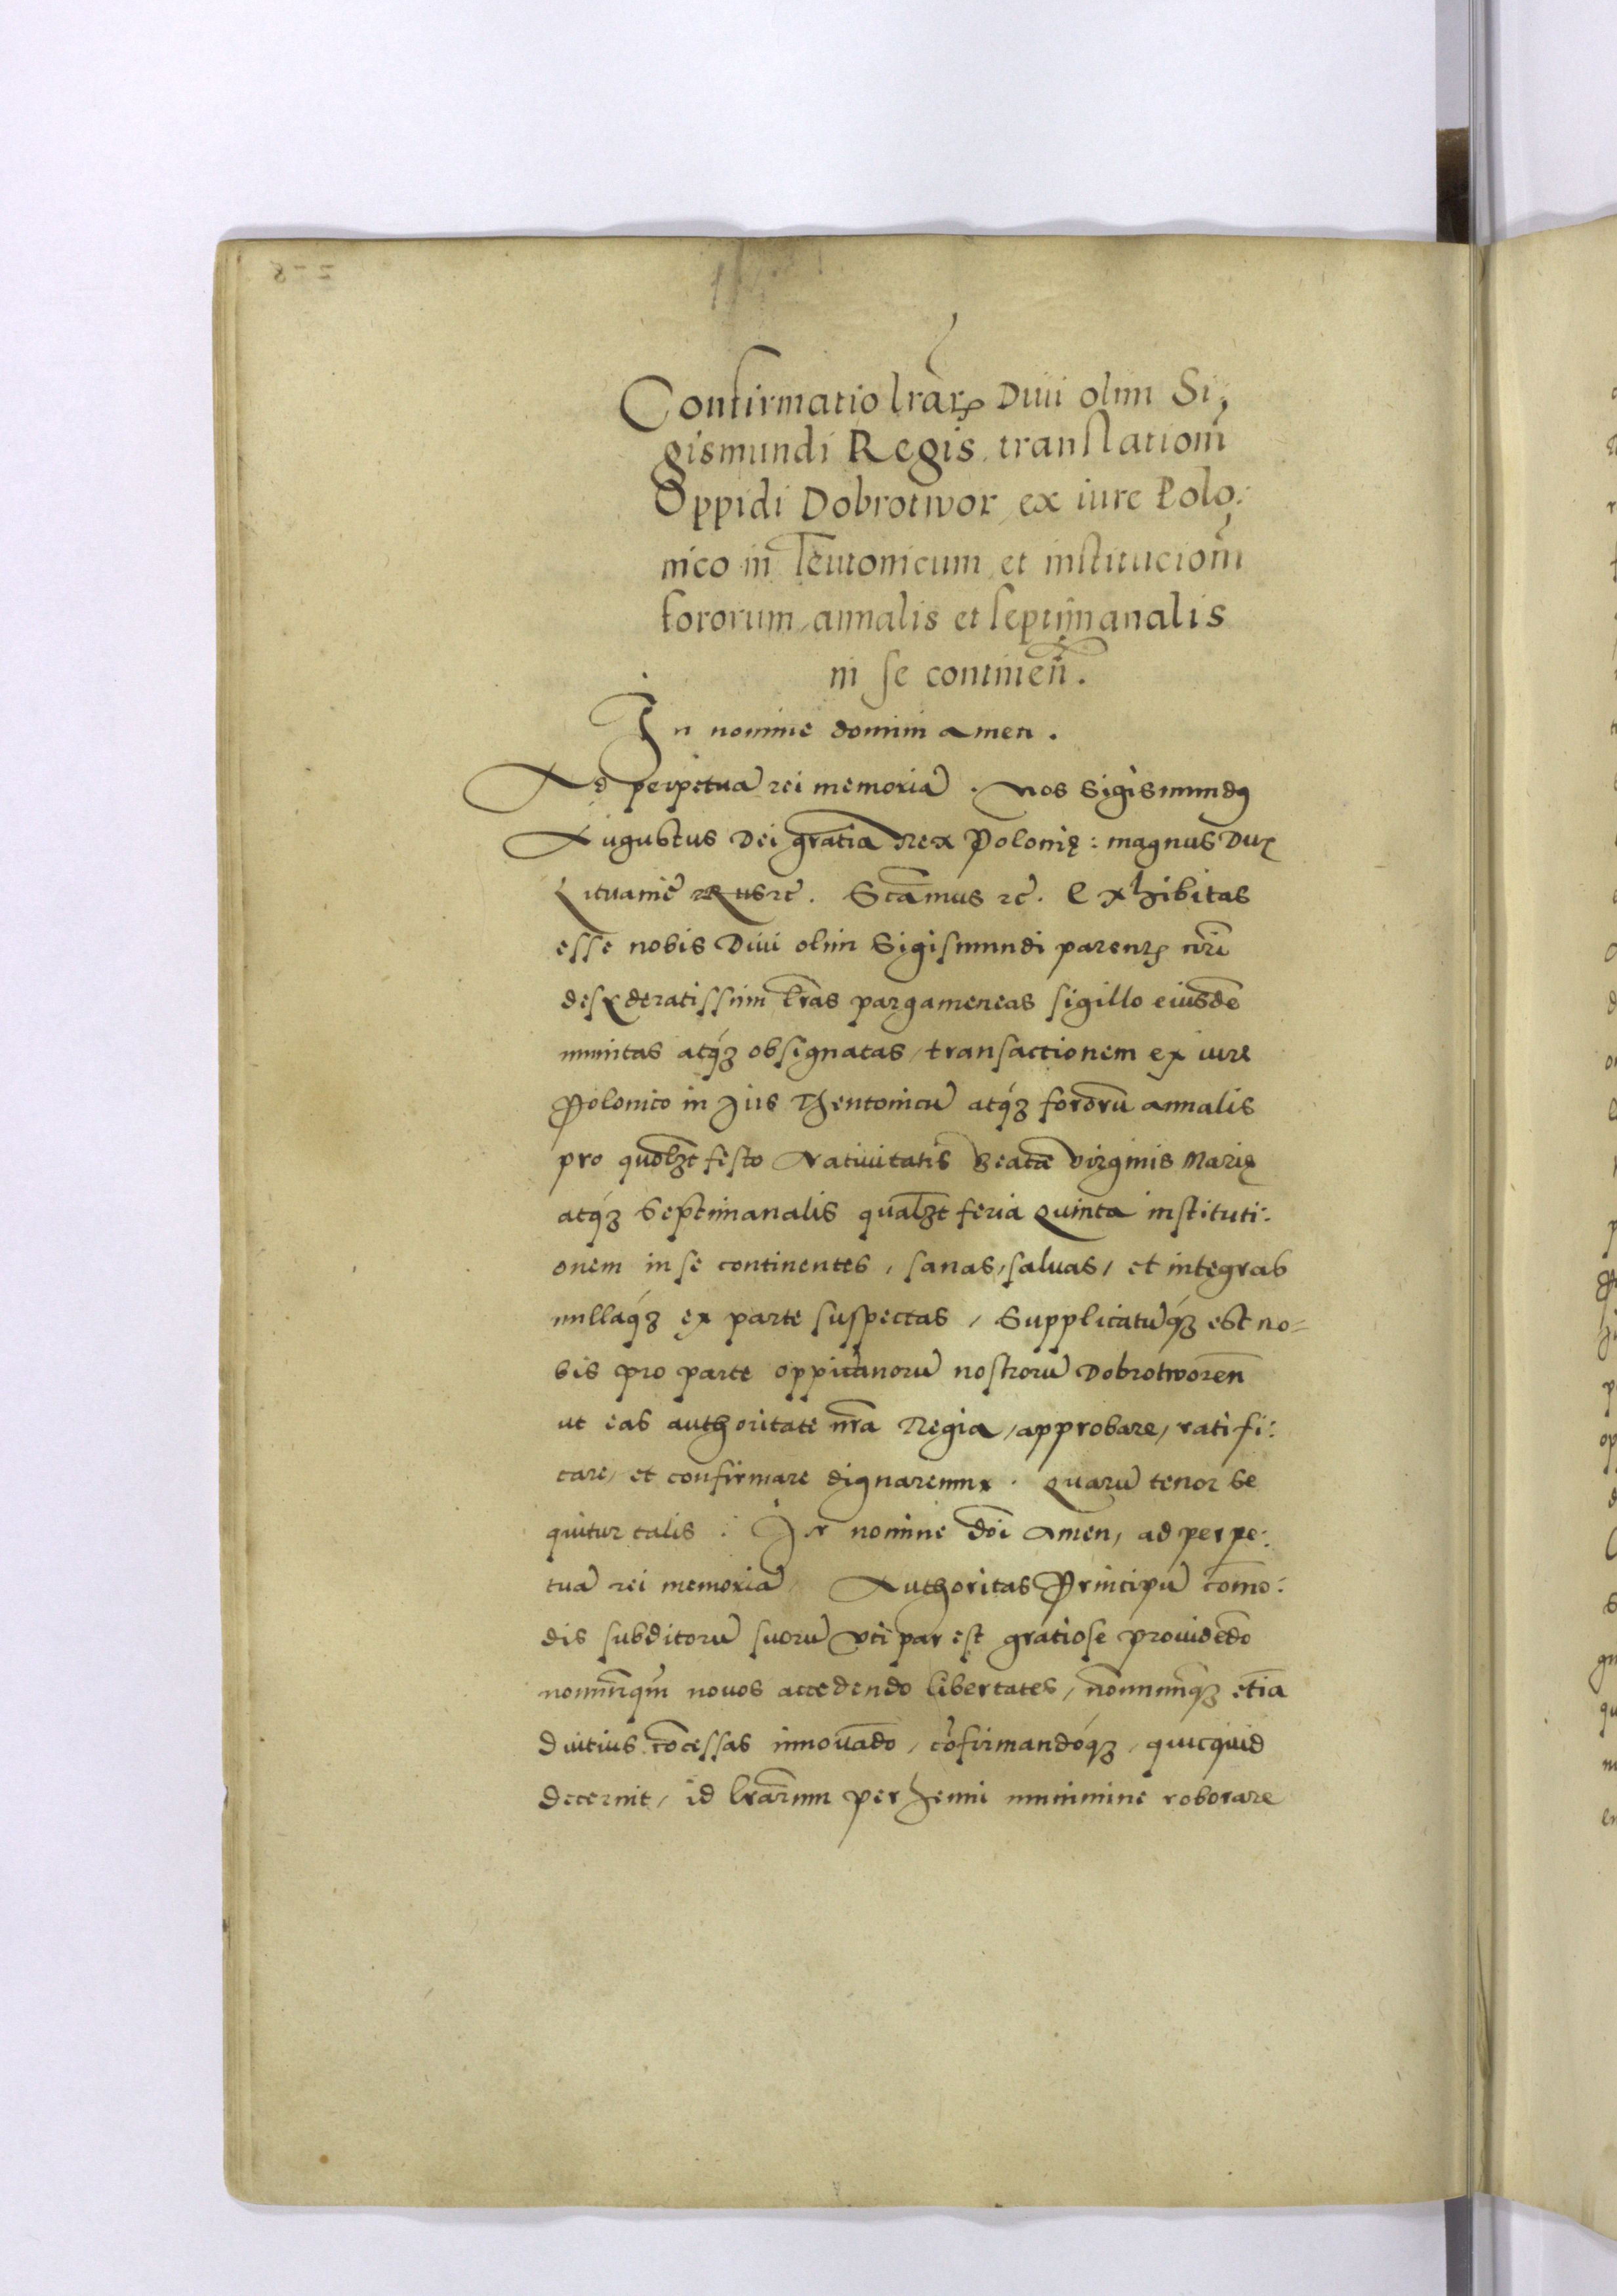 Confirmatio lrarꝝ Diui olim Si,
gismundi Regis, translationῆ
Oppidi Dobrotwor, ex iure Polo:
nico in Teutonicum, et institucionῆ
fororum, annalis et septimanalis
in se continen̄.
In nomine domini amen.
Ad perpetuā rei memoriā. Nos Sigismundꝰ
Augustus Dei gratia Rex Polonię: magnus Dux
Lituanię Rus ꝛc̄. Scāmus ꝛc̄. Exhibitas
esse nobis Diui olim Sigismundi parentꝭ nr̄i
desyderatissim lr̄as pargameneas sigillo eiusdē
munitas atqꝫ obsignatas, transactionem ex iure
Polonico in Jus Theutonicū atqꝫ fororū annalis
pro quolꝫt festo Natiuitatis Beatæ Virginis Marię
atqꝫ Septimanalis qualꝫt feria Quinta instituti:
onem in se continentes, sanas, saluas, et integras
nullaqꝫ ex parte suspectas, Supplicatūqꝫ est no=
bis pro parte oppidanorū nostrorū Dobrotworen̄
ut eas authoritate nr̄a Regia, approbare, ratifi:
care, et confirmare dignaremur. Quarū tenor se
quitur talis: In nomine dōi Amen, ad perpe:
tuā rei memoriā, Authoritas Principū com̄o:
dis subditorū suorū vti par est gratiose prouidēdo
nonnūnqm̄ nouos accedendo libertates, nonnunqꝫ etiā
diutius cōcessas innouādo, cōfirmandoqꝫ, quicquid
decernit, id lr̄arum perhenni munimine roborare